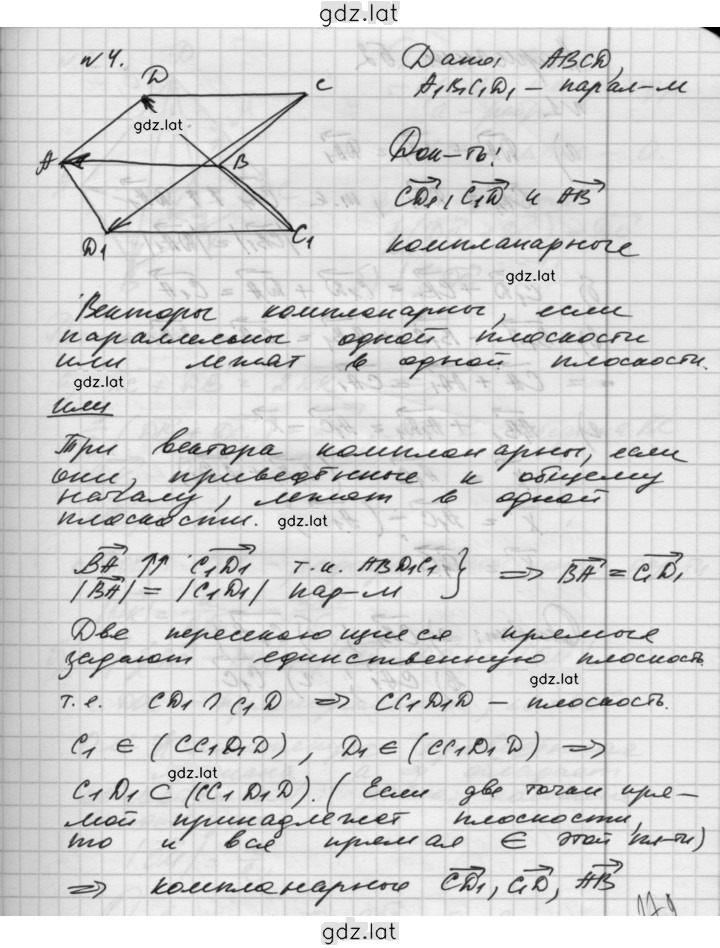 gdz.lat
№4.
Дано: ABCD,
A₁B₁C₁D₁ – парал-м
D
C
gdz.lat
A
B
D₁
C₁
Док-ть:
CD₁, C₁D и AB
gdz.lat
компланарные
Векторы компланарны, если
параллельны одной плоскости
или лежат в одной плоскости.
gdz.lat
или
Три вектора компланарны, если
они, приведённые к общему
началу, лежат в одной
плоскости. gdz.lat
BA ↑↑ C₁D₁ т.к. ABD₁C₁ } ⇒ BA = C₁D₁
|BA| = |C₁D₁| пар-м
Две пересекающиеся прямые
задают единственную плоскость
gdz.lat
т.е. CD₁ ∩ C₁D ⇒ CC₁D₁D – плоскость.
C₁ ∈ (CC₁D₁D), D₁ ∈ (CC₁D₁D) ⇒
gdz.lat
C₁D₁ ⊂ (CC₁D₁D). (Если две точки пря-
мой принадлежат плоскости,
то и вся прямая ∈ этой пл-ти)
⇒ компланарные CD₁, C₁D, AB
gdz.lat